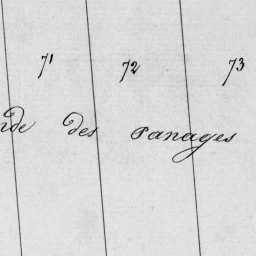 71 72 73
des Panages